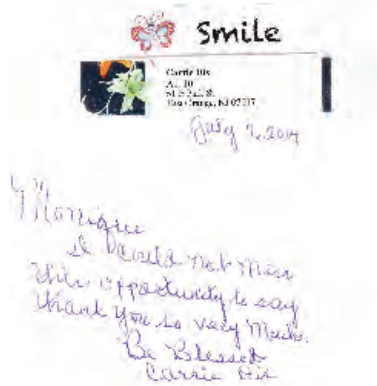 Smile
Carrie Bis
East Orange, NJ 07017
July 2, 2004
Monique
I would not miss
this opportunity to say
thank you so very much.
Be Blessed
Carrie Bis